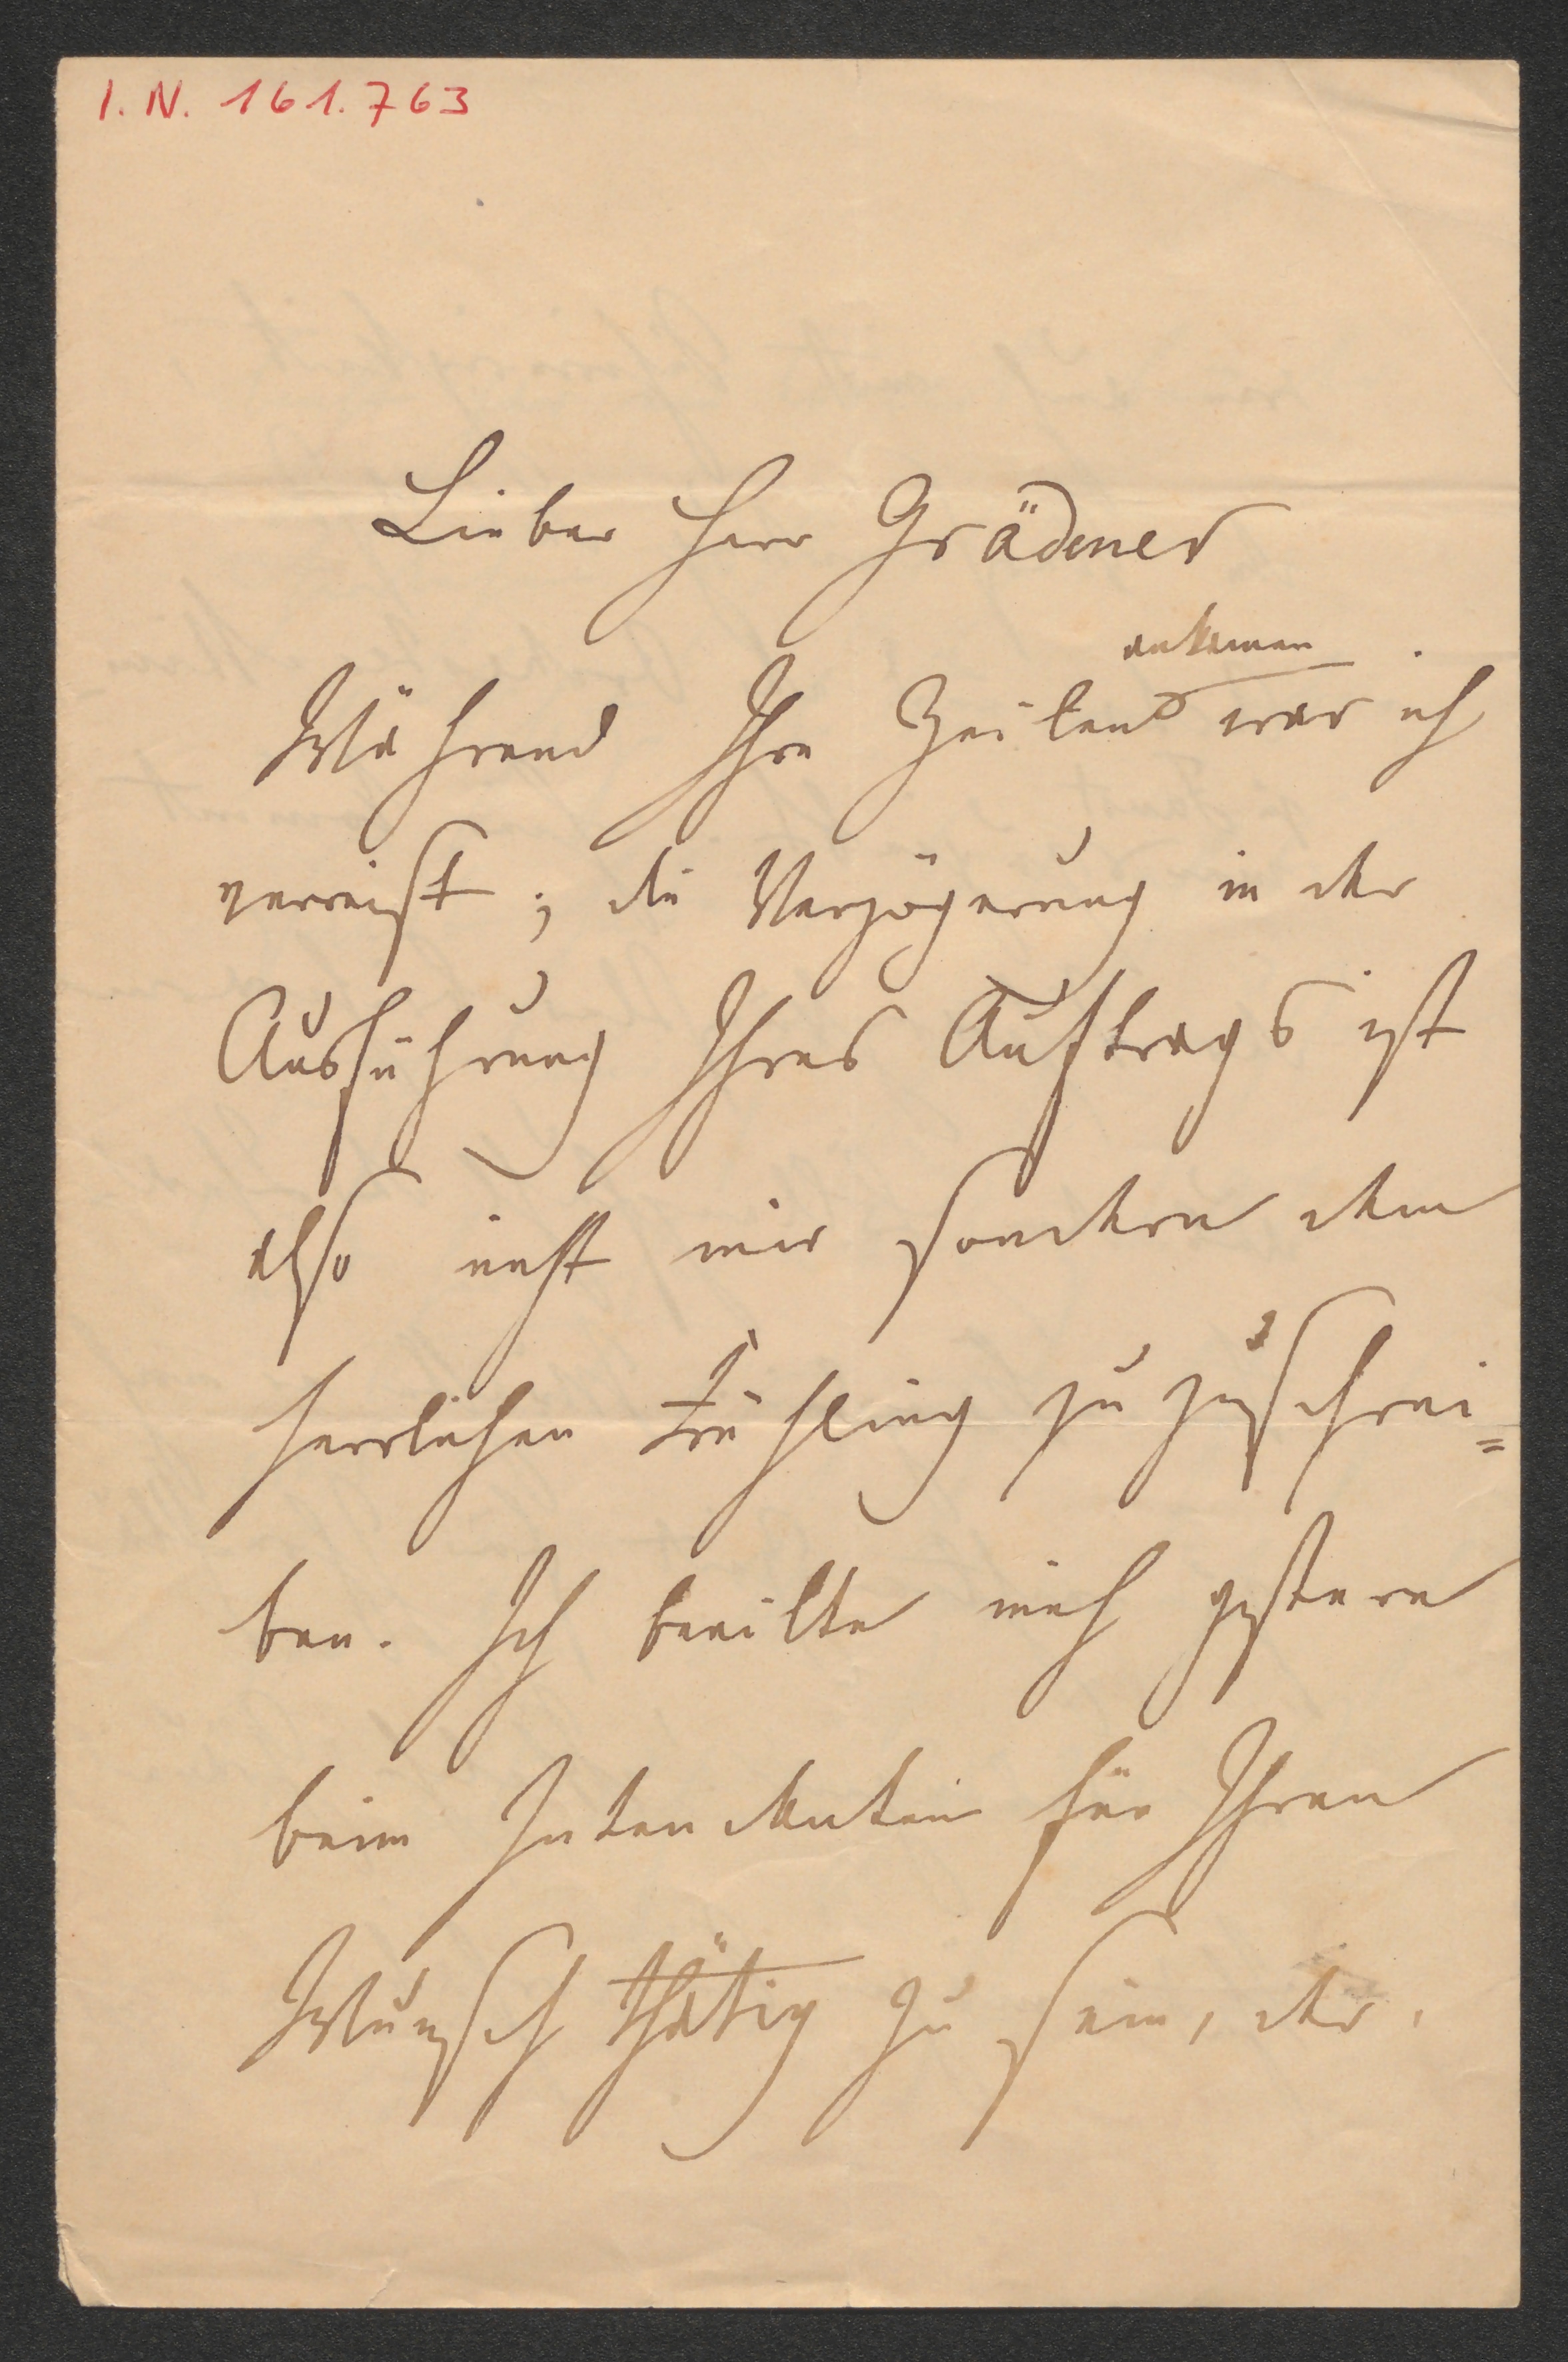 I. N. 161.763
Lieber Herr Grädener
ankamen
Während Ihre Zeilen war ich
verreist; die Verzögerung in der
Ausführung Ihres Auftrags ist
also nicht mir sondern dem
herrlichen Frühling zuzuschrei=
ben. Ich beeilte mich gestern
beim für Ihren
Wunsch thätig zu sein, der